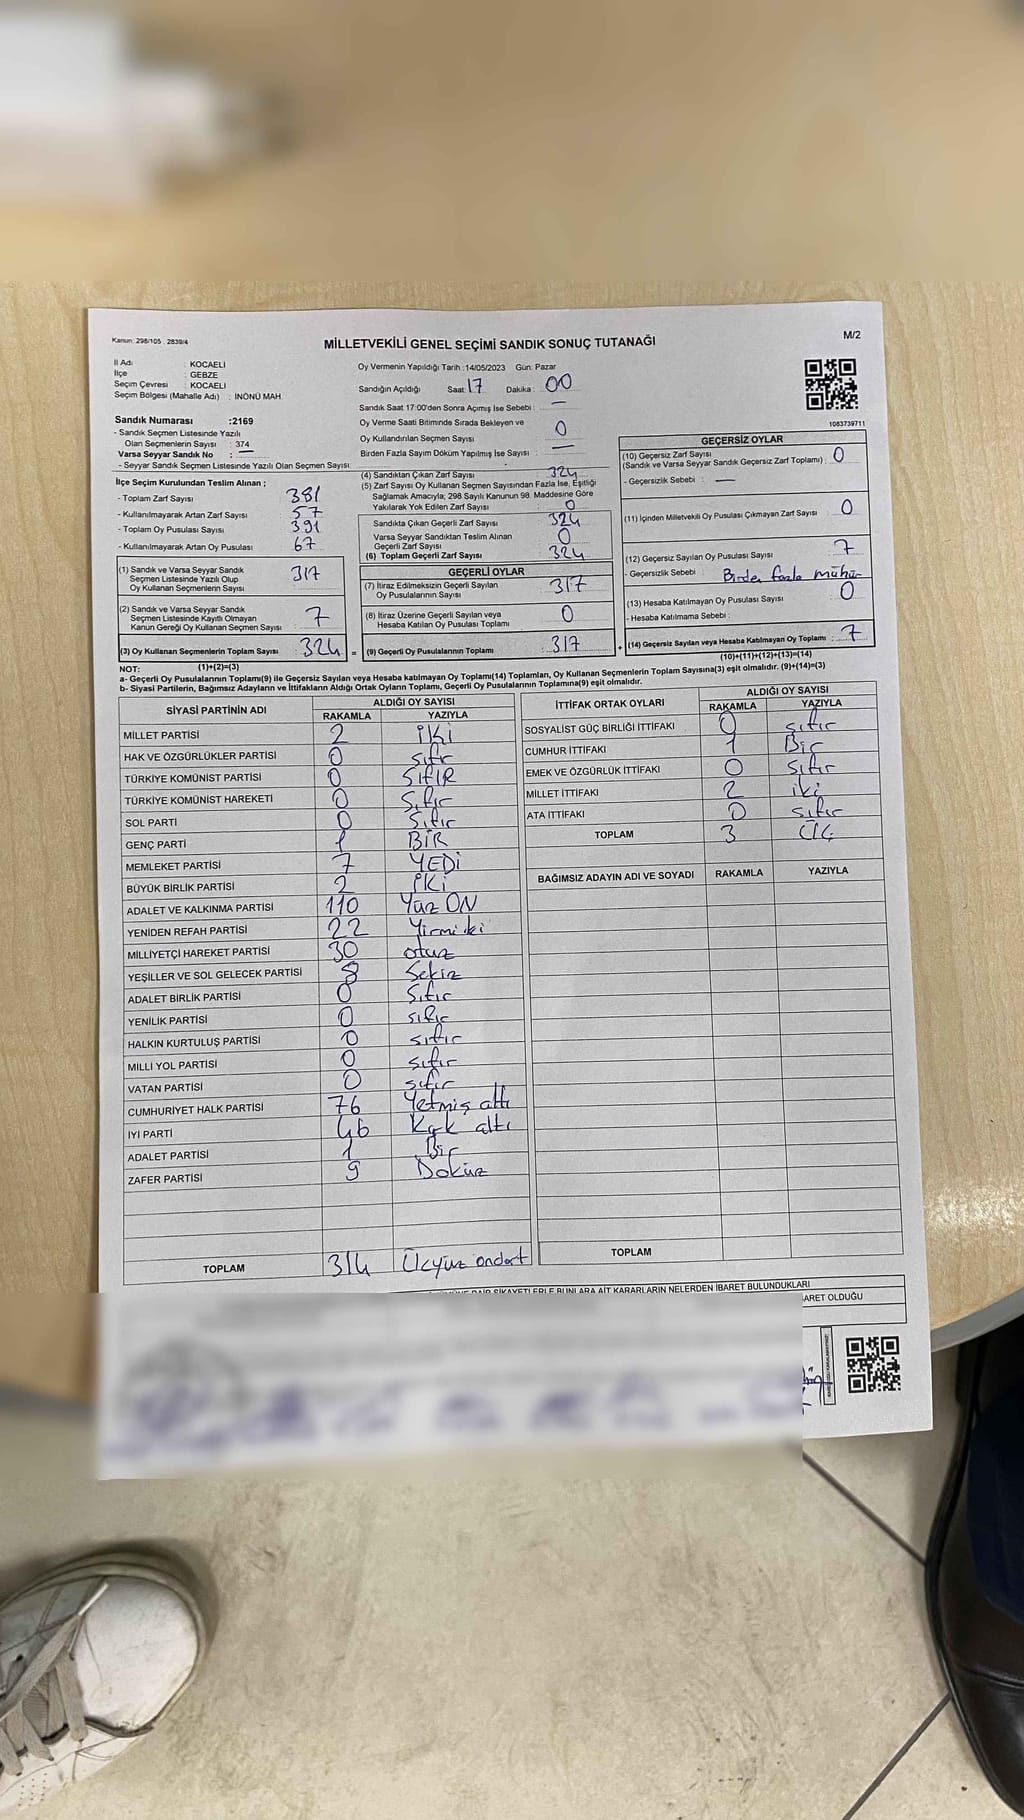 Kanun: 298/105 , 2839/4
M/2
MİLLETVEKİLİ GENEL SEÇİMİ SANDIK SONUÇ TUTANAĞI
İl Adı : KOCAELİ
İlçe : GEBZE
Seçim Çevresi : KOCAELİ
Seçim Bölgesi (Mahalle Adı) : İNÖNÜ MAH.
Sandık Numarası :2169
- Sandık Seçmen Listesinde Yazılı
Olan Seçmenlerin Sayısı : 374
Varsa Seyyar Sandık No : —
- Seyyar Sandık Seçmen Listesinde Yazılı Olan Seçmen Sayısı
İlçe Seçim Kurulundan Teslim Alınan ;
- Toplam Zarf Sayısı 381
- Kullanılmayarak Artan Zarf Sayısı 57
- Toplam Oy Pusulası Sayısı 391
- Kullanılmayarak Artan Oy Pusulası 67
(1) Sandık ve Varsa Seyyar Sandık
Seçmen Listesinde Yazılı Olup
Oy Kullanan Seçmenlerin Sayısı 317
(2) Sandık ve Varsa Seyyar Sandık
Seçmen Listesinde Kayıtlı Olmayan
Kanun Gereği Oy Kullanan Seçmen Sayısı 7
(3) Oy Kullanan Seçmenlerin Toplam Sayısı : 324 =
Oy Vermenin Yapıldığı Tarih :14/05/2023 Gün: Pazar
Sandığın Açıldığı Saat 17 Dakika : 00
Sandık Saat 17:00'den Sonra Açımış İse Sebebi : —
Oy Verme Saati Bitiminde Sırada Bekleyen ve
Oy Kullandırılan Seçmen Sayısı 0
Birden Fazla Sayım Döküm Yapılmış İse Sayısı : —
(4) Sandıktan Çıkan Zarf Sayısı 324
(5) Zarf Sayısı Oy Kullanan Seçmen Sayısından Fazla İse, Eşitliği
Sağlamak Amacıyla; 298 Sayılı Kanunun 98. Maddesine Göre
Yakılarak Yok Edilen Zarf Sayısı 0
Sandıkta Çıkan Geçerli Zarf Sayısı 324
Varsa Seyyar Sandıktan Teslim Alınan
Geçerli Zarf Sayısı 0
(6) Toplam Geçerli Zarf Sayısı 324
GEÇERLİ OYLAR
(7) İtiraz Edilmeksizin Geçerli Sayılan
Oy Pusulalarının Sayısı : 317
(8) İtiraz Üzerine Geçerli Sayılan veya
Hesaba Katılan Oy Pusulası Toplamı 0
(9) Geçerli Oy Pusulalarının Toplamı : 317 +
1083739711
GEÇERSİZ OYLAR
(10) Geçersiz Zarf Sayısı
(Sandık ve Varsa Seyyar Sandık Geçersiz Zarf Toplamı) : 0
- Geçersizlik Sebebi : —
(11) İçinden Milletvekili Oy Pusulası Çıkmayan Zarf Sayısı 0
(12) Geçersiz Sayılan Oy Pusulası Sayısı 7
- Geçersizlik Sebebi : Birden fazla mühür
(13) Hesaba Katılmayan Oy Pusulası Sayısı 0
- Hesaba Katılmama Sebebi :
(14) Geçersiz Sayılan veya Hesaba Katılmayan Oy Toplamı : 7
NOT: (1)+(2)=(3) (10)+(11)+(12)+(13)=(14)
a- Geçerli Oy Pusulalarının Toplamı(9) ile Geçersiz Sayılan veya Hesaba katılmayan Oy Toplamı(14) Toplamları, Oy Kullanan Seçmenlerin Toplam Sayısına(3) eşit olmalıdır. (9)+(14)=(3)
b- Siyasi Partilerin, Bağımsız Adayların ve İttifakların Aldığı Ortak Oyların Toplamı, Geçerli Oy Pusulalarının Toplamına(9) eşit olmalıdır.
SİYASİ PARTİNİN ADI ALDIĞI OY SAYISI
RAKAMLA YAZIYLA
MİLLET PARTİSİ 2 İKİ
HAK VE ÖZGÜRLÜKLER PARTİSİ 0 sıfır
TÜRKİYE KOMÜNİST PARTİSİ 0 SIFIR
TÜRKİYE KOMÜNİST HAREKETİ 0 Sıfır
SOL PARTİ 0 Sıfır
GENÇ PARTİ 1 BİR
MEMLEKET PARTİSİ 7 YEDİ
BÜYÜK BİRLİK PARTİSİ 2 İKİ
ADALET VE KALKINMA PARTİSİ 110 Yüz ON
YENİDEN REFAH PARTİSİ 22 Yirmi iki
MİLLİYETÇİ HAREKET PARTİSİ 30 otuz
YEŞİLLER VE SOL GELECEK PARTİSİ 8 Sekiz
ADALET BİRLİK PARTİSİ 0 Sıfır
YENİLİK PARTİSİ 0 sıfır
HALKIN KURTULUŞ PARTİSİ 0 sıfır
MİLLİ YOL PARTİSİ 0 sıfır
VATAN PARTİSİ 0 sıfır
CUMHURİYET HALK PARTİSİ 76 Yetmiş altı
İYİ PARTİ 46 Kırk altı
ADALET PARTİSİ 1 Bir
ZAFER PARTİSİ 9 Dokuz
TOPLAM 314 Üçyüz ondört
İTTİFAK ORTAK OYLARI ALDIĞI OY SAYISI
RAKAMLA YAZIYLA
SOSYALİST GÜÇ BİRLİĞİ İTTİFAKI 0 sıfır
CUMHUR İTTİFAKI 1 Bir
EMEK VE ÖZGÜRLÜK İTTİFAKI 0 sıfır
MİLLET İTTİFAKI 2 iki
ATA İTTİFAKI 0 sıfır
TOPLAM 3 Üç
BAĞIMSIZ ADAYIN ADI VE SOYADI RAKAMLA YAZIYLA
TOPLAM
DAİR ŞİKAYETLERLE BUNLARA AİT KARARLARIN NELERDEN İBARET BULUNDUKLARI
OLDUĞU